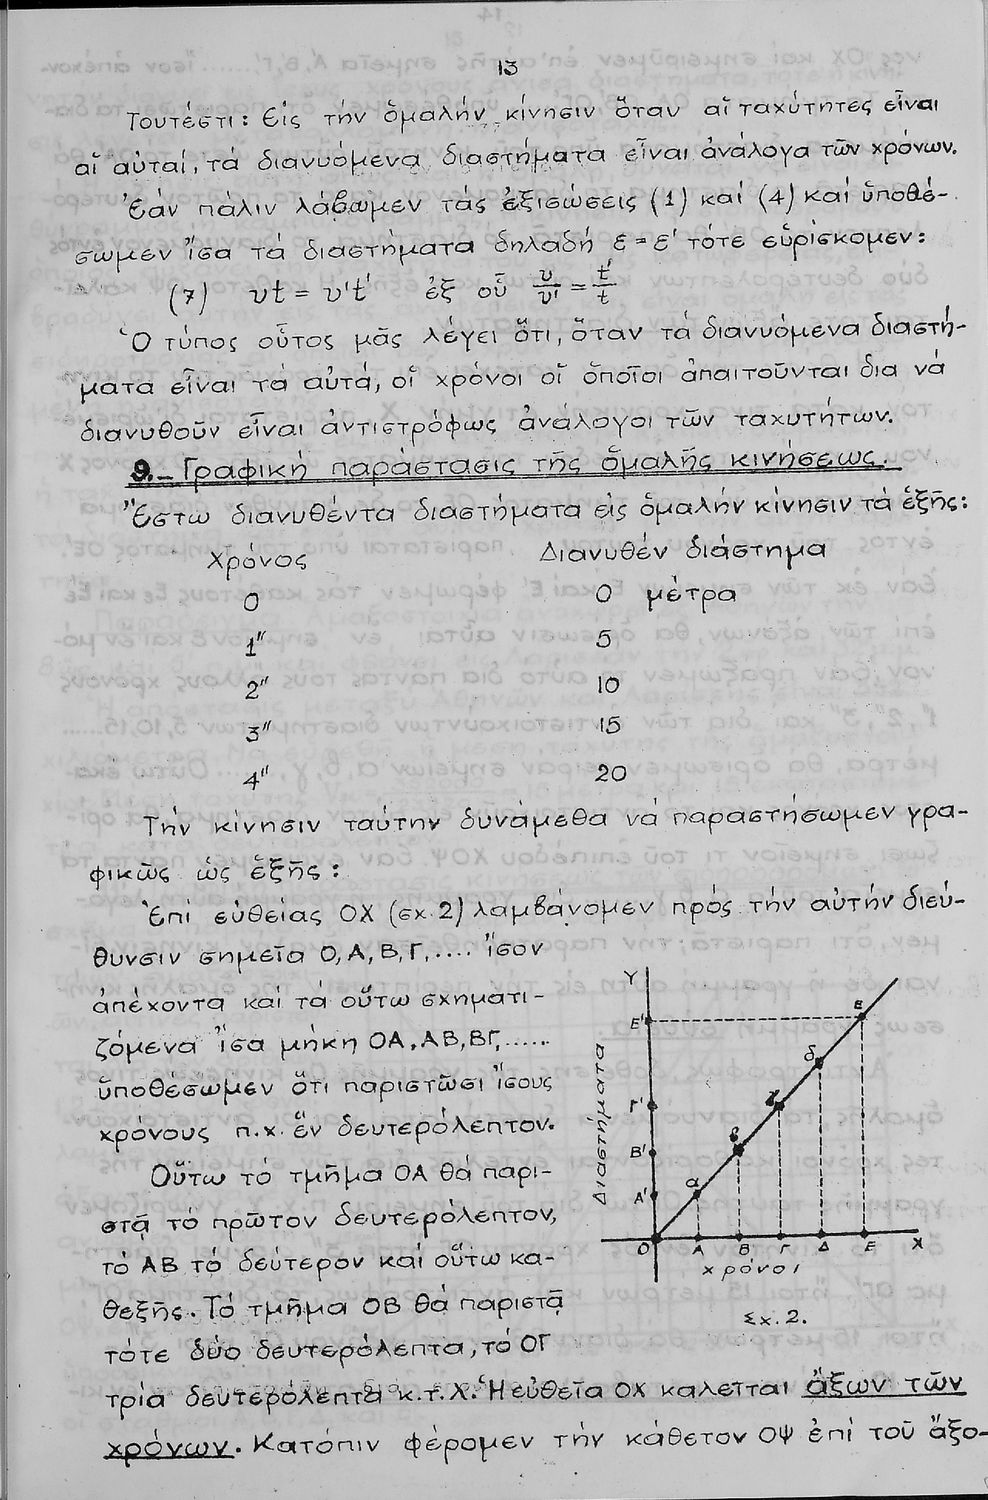 13
Τουτέστι: Εἰς τήν ὁμαλήν κίνησιν ὅταν αἱ ταχύτητες εἶναι
αἱ αὐταί, τά διανυόμενα διαστήματα εἶναι ἀνάλογα τῶν χρόνων.
Ἐάν πάλιν λάβωμεν τάς ἐξισώσεις (1) καί (4) καί ὑποθέ-
σωμεν ἴσα τά διαστήματα δηλαδή ε = ε' τότε εὑρίσκομεν:
(7) υt = υ't' ἐξ οὗ υ/υ' = t'/t
Ὁ τύπος οὗτος μᾶς λέγει ὅτι, ὅταν τά διανυόμενα διαστή-
ματα εἶναι τά αὐτά, οἱ χρόνοι οἱ ὁποῖοι ἀπαιτοῦνται δια νά
διανυθοῦν εἶναι ἀντιστρόφως ἀνάλογοι τῶν ταχυτήτων.
9.- Γραφική παράστασις τῆς ὁμαλῆς κινήσεως.
Ἔστω διανυθέντα διαστήματα εἰς ὁμαλήν κίνησιν τά ἑξῆς:
Χρόνος Διανυθέν διάστημα
0 0 μέτρα
1" 5
2" 10
3" 15
4" 20
Τήν κίνησιν ταύτην δυνάμεθα νά παραστήσωμεν γρα-
φικῶς ὡς ἑξῆς:
Ἐπί εὐθείας ΟΧ (σχ. 2) λαμβάνομεν πρός τήν αὐτήν διεύ-
θυνσιν σημεῖα Ο, Α, Β, Γ, .... ἴσον
ἀπέχοντα καί τά οὕτω σχηματι-
ζόμενα ἴσα μήκη ΟΑ, ΑΒ, ΒΓ, ......
ὑποθέσωμεν ὅτι παριστῶσι ἴσους
χρόνους π.χ. ἕν δευτερόλεπτον.
Οὕτω τό τμῆμα ΟΑ θά παρι-
στᾷ τό πρῶτον δευτερόλεπτον,
τό ΑΒ τό δεύτερον καί οὕτω κα-
θεξῆς. Τό τμῆμα ΟΒ θά παριστᾷ
τότε δύο δευτερόλεπτα, τό ΟΓ
τρία δευτερόλεπτα κ.τ.Χ. Ἡ εὐθεῖα ΟΧ καλεῖται ἄξων τῶν
χρόνων. Κατόπιν φέρομεν τήν κάθετον ΟΨ ἐπί τοῦ ἄξο-
Υ
Ε' ε
δ
Γ' γ
Β' β
Α' α
Διαστήματα
Ο Α Β Γ Δ Ε Χ
χρόνοι
Σχ. 2.